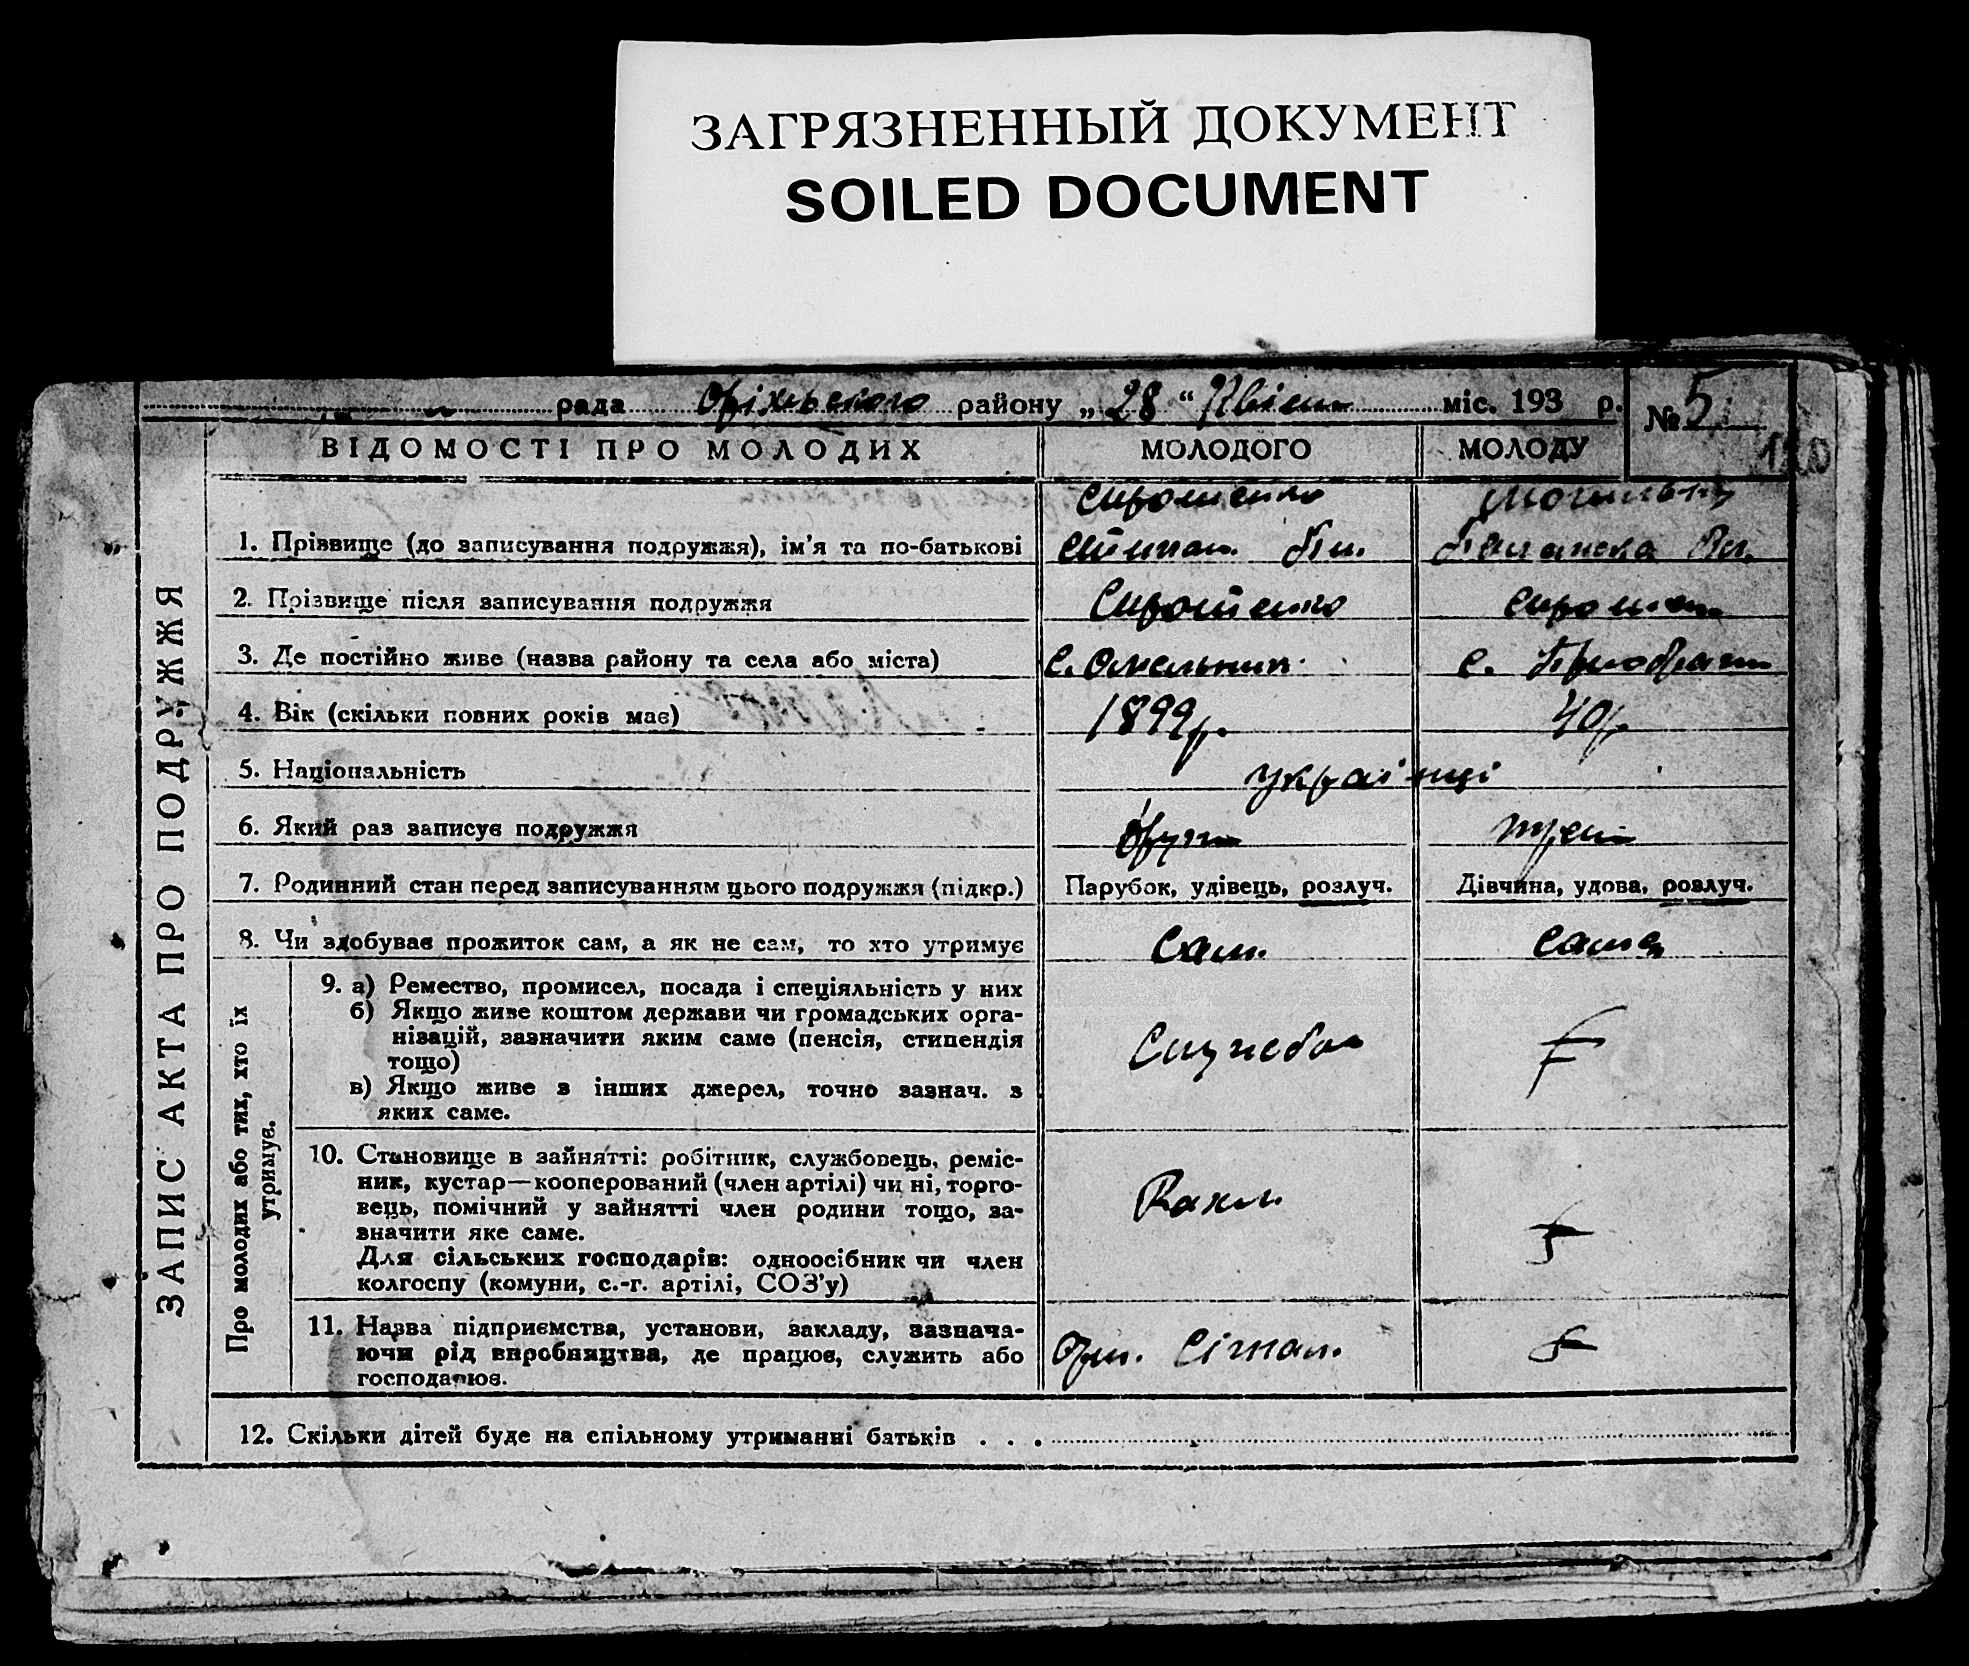 ЗАГРЯЗНЕННЫЙ ДОКУМЕНТ
SOILED DOCUMENT
рада Оріхівського району „ 28 “ Квітня міс. 193 р.
№ 5
ЗАПИС АКТА ПРО ПОДРУЖЖЯ
ВІДОМОСТІ ПРО МОЛОДИХ МОЛОДОГО МОЛОДУ
Сиротенко
1. Прізвище (до записування подружжя), ім’я та по-батькові
2. Прізвище після записування подружжя Сиротенко
3. Де постійно живе (назва району та села або міста) с. Омельник с.
4. Вік (скільки повних років має) 1899р. 40р.
5. Національність українці
6. Який раз записує подружжя
7. Родинний стан перед записуванням цього подружжя (підкр.) Парубок, удівець, розлуч. Дівчина, удова, розлуч.
8. Чи здобуває прожиток сам, а як не сам, то хто утримує Сам. Сама
Про молодих або тих, хто їх
утримує.
9. а) Ремество, промисел, посада і специяльність у них
б) Якщо живе коштом держави чи громадських орга-
нізацій, зазначити яким саме (пенсія, стипендія
тощо)
в) Якщо живе з інших джерел, точно зазнач. з
яких саме.
10. Становище в зайнятті: робітник, службовець, реміс-
ник, кустар—кооперований (член артілі) чи ні, торго-
вець, помічний у зайнятті член родини тощо, за-
значити яке саме.
Для сільських господарів: одноосібник чи член
колгоспу (комуни, с.-г. артілі, СОЗ’у)
11. Назва підприємства, установи, закладу, зазнача-
ючи рід виробництва, де працює, служить або
господарює.
12. Скільки дітей буде на спільному утриманні батьків . . .